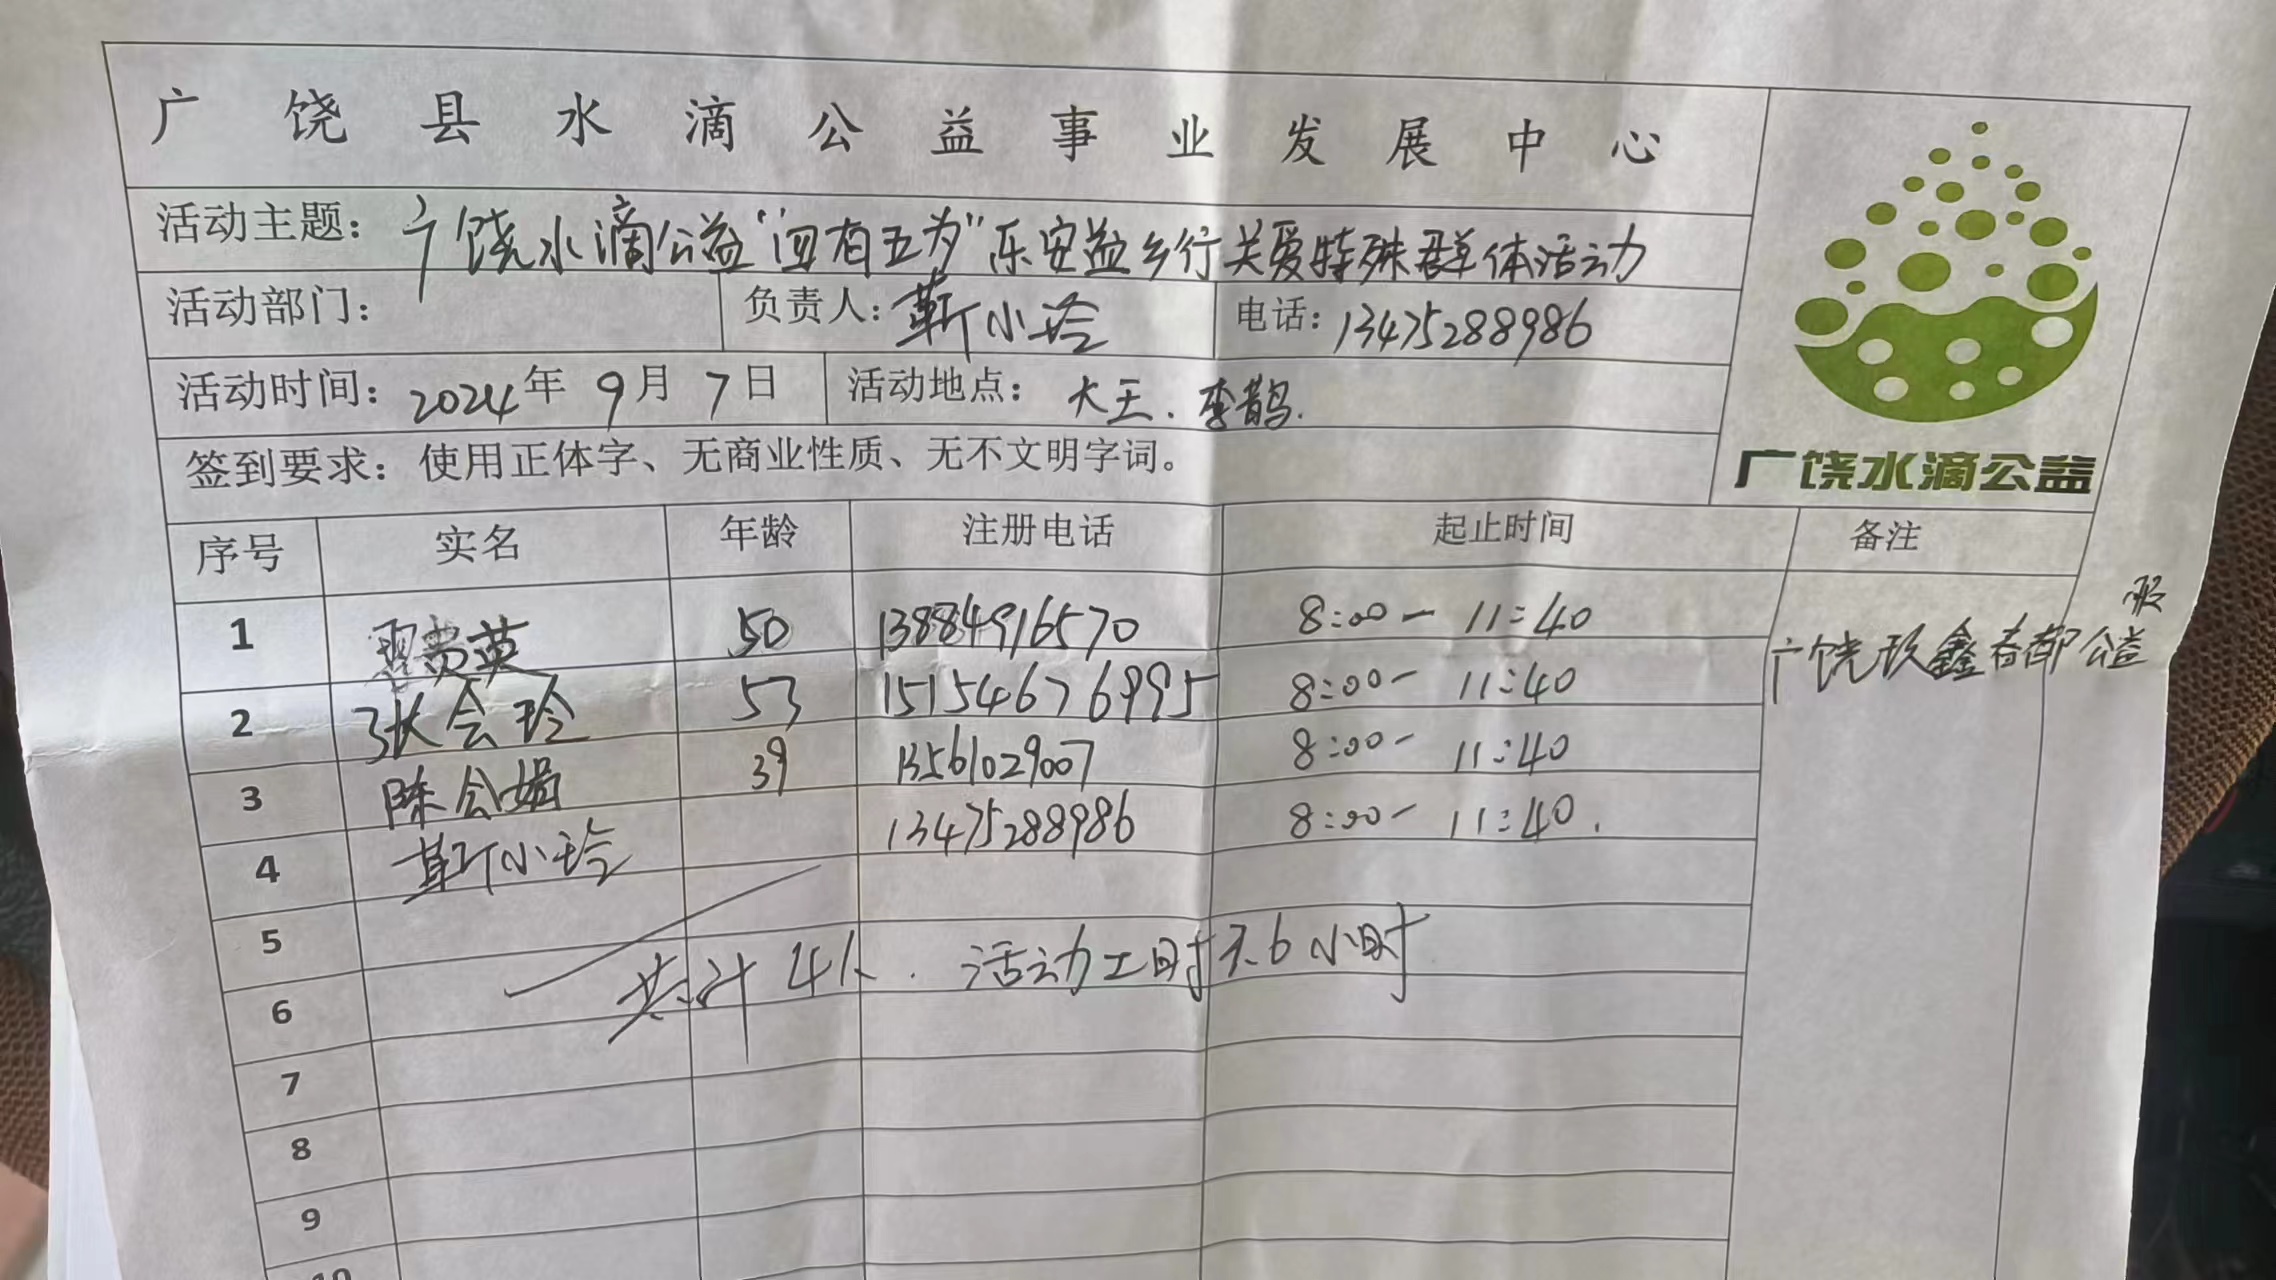 广饶县水滴公益事业发展中心
活动主题：广饶水滴公益"四有五为"乐安益乡行关爱特殊群体活动
活动部门： 负责人：靳小玲 电话：13475288986
活动时间：2024年9月7日 活动地点：大王．李鹊．
签到要求：使用正体字、无商业性质、无不文明字词。
广饶水滴公益
序号 实名 年龄 注册电话 起止时间 备注
1 翟贵英 50 13884916570 8:00－11:40 广饶玖鑫春都公益
2 张会玲 53 15154676995 8:00－11:40
3 陈会娟 39 13561029007 8:00－11:40
4 靳小玲 13475288986 8:00－11:40．
5
共计4人．活动工时3.6小时
6
7
8
9
10